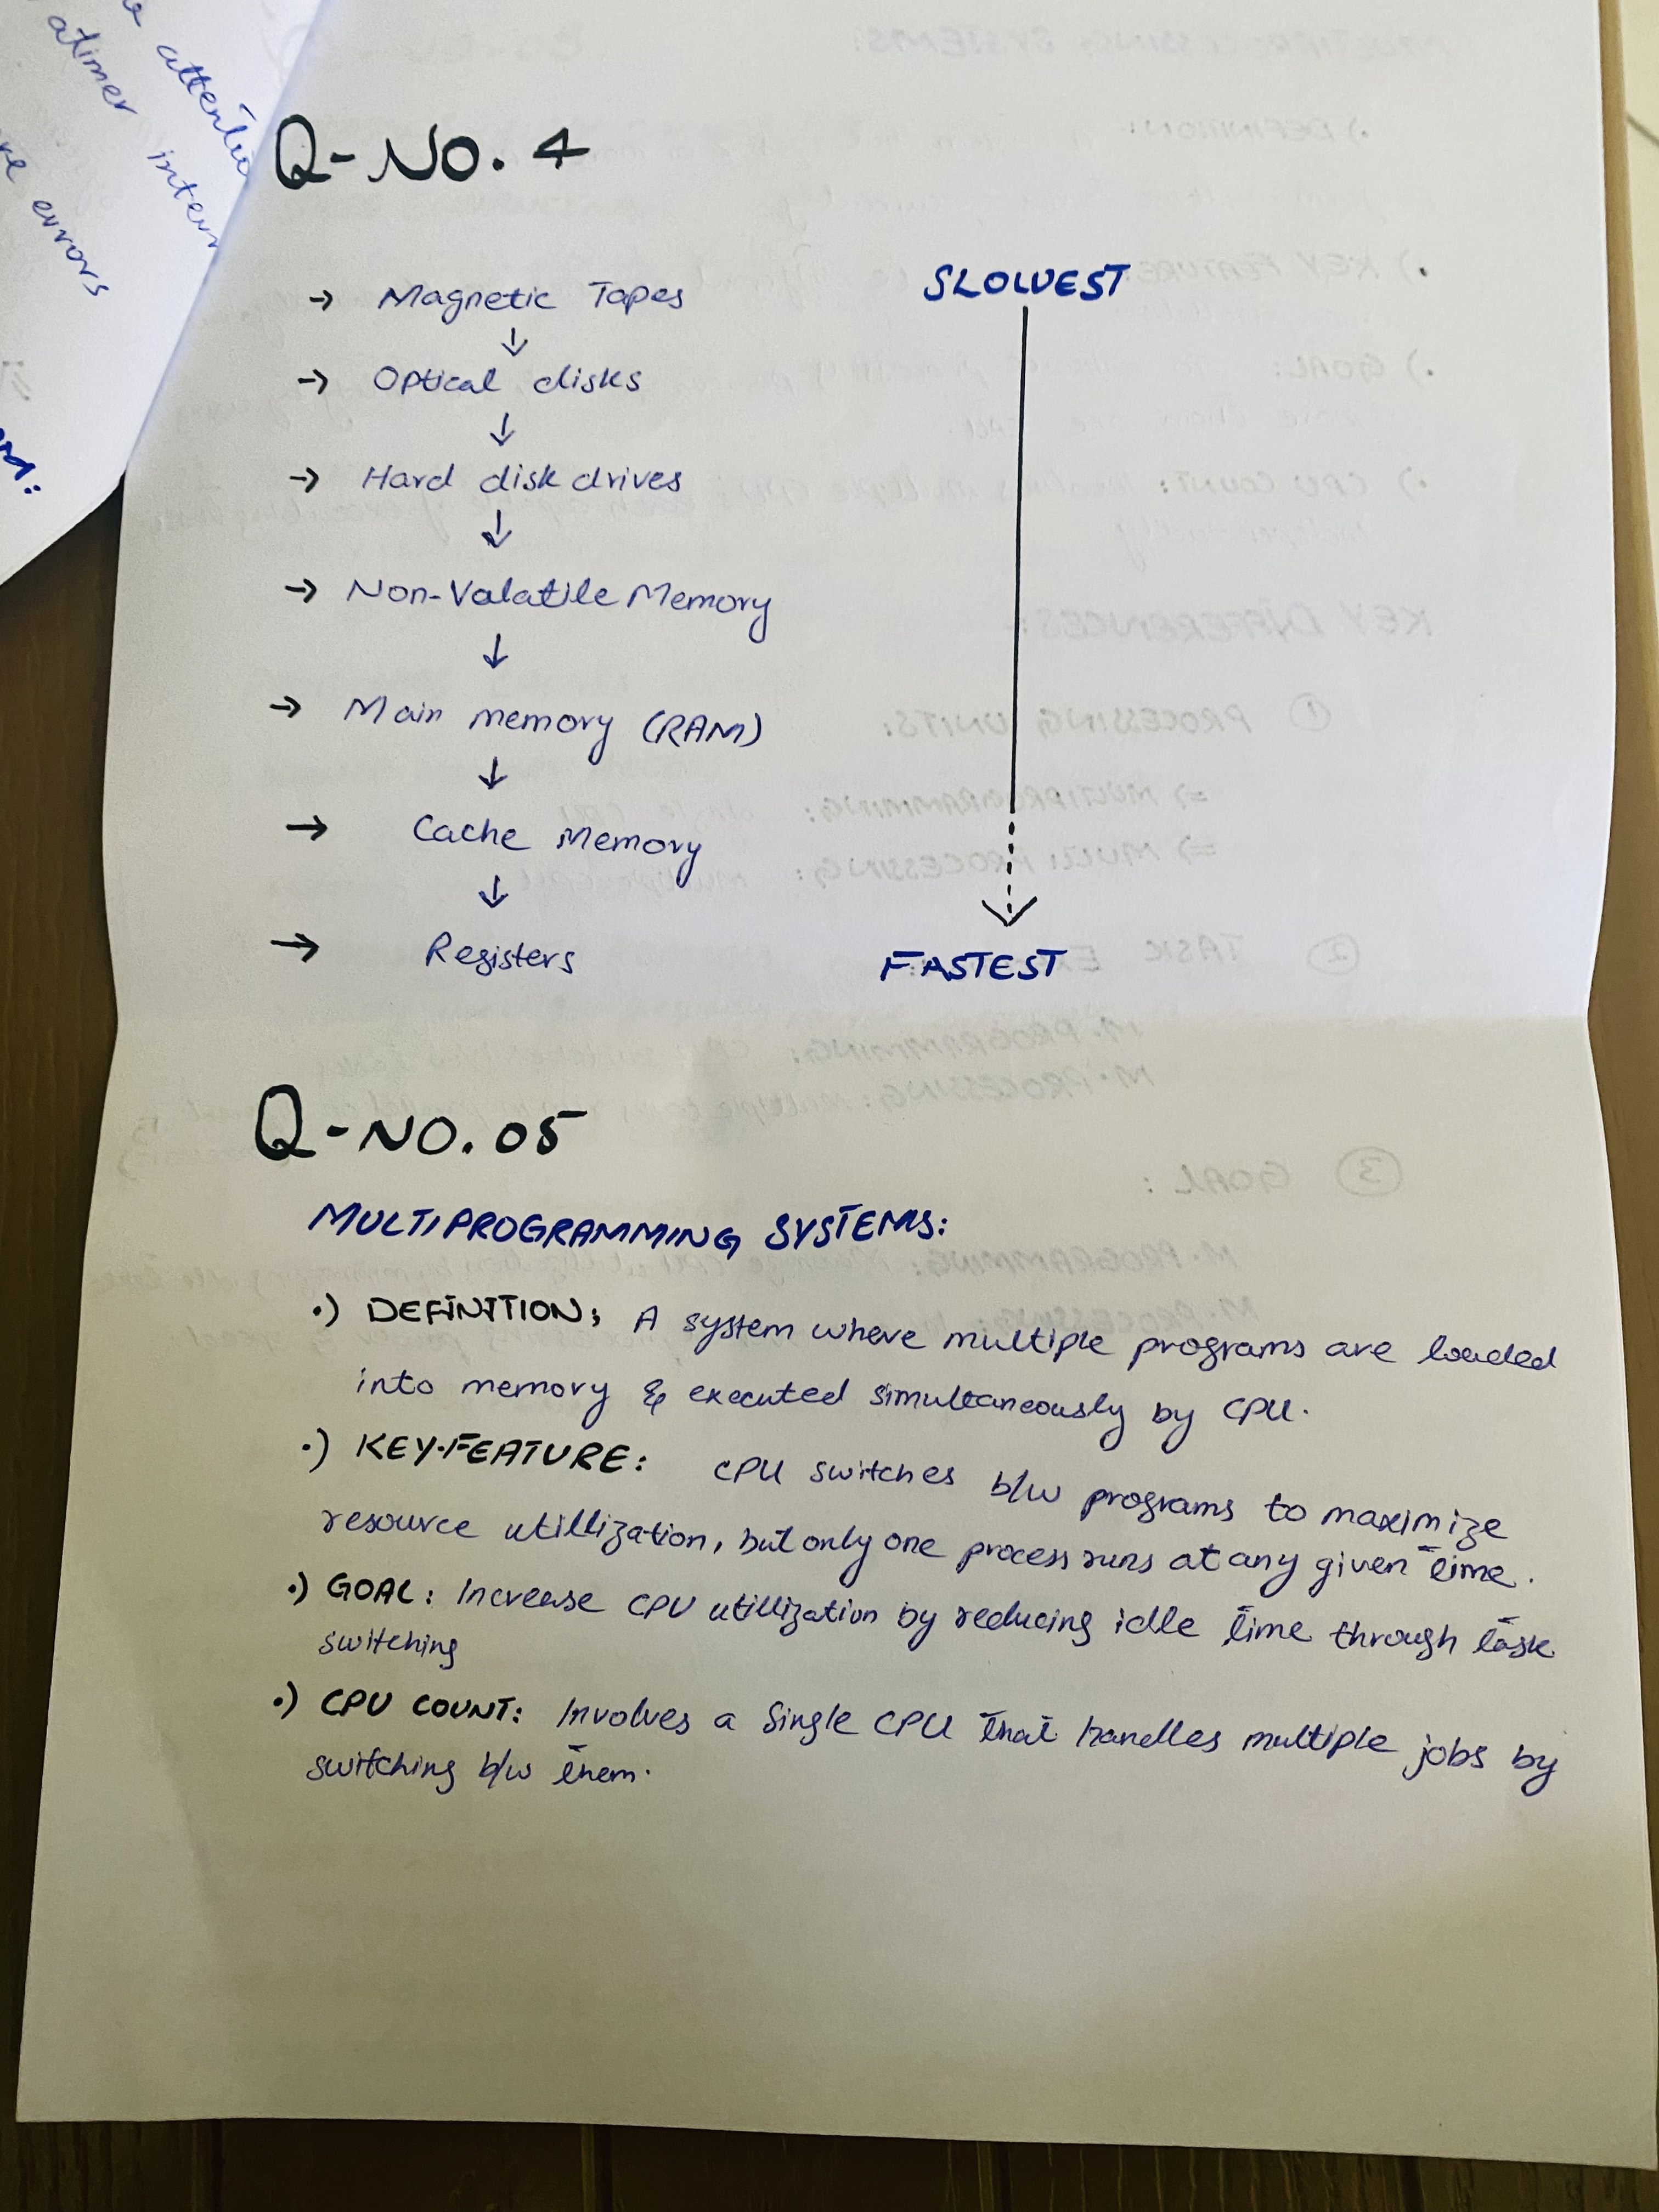 attentio
atimer interr
re errors
Q-NO. 4
→ Magnetic Tapes
↓
→ Optical disks
↓
→ Hard disk drives
↓
→ Non-Valatile Memory
↓
→ Main memory (RAM)
↓
→ Cache Memory
↓
→ Registers
SLOWEST
FASTEST
Q-NO. 05
MULTIPROGRAMMING SYSTEMS:
•) DEFINITION: A system where multiple programs are loaded
into memory & executed simultaneously by CPU.
•) KEY-FEATURE: CPU switches b/w programs to maximize
resource utillization, but only one process runs at any given time.
•) GOAL: Increase CPU utillization by reducing idle time through task
switching
•) CPU COUNT: Involves a Single CPU that handles multiple jobs by
switching b/w them.